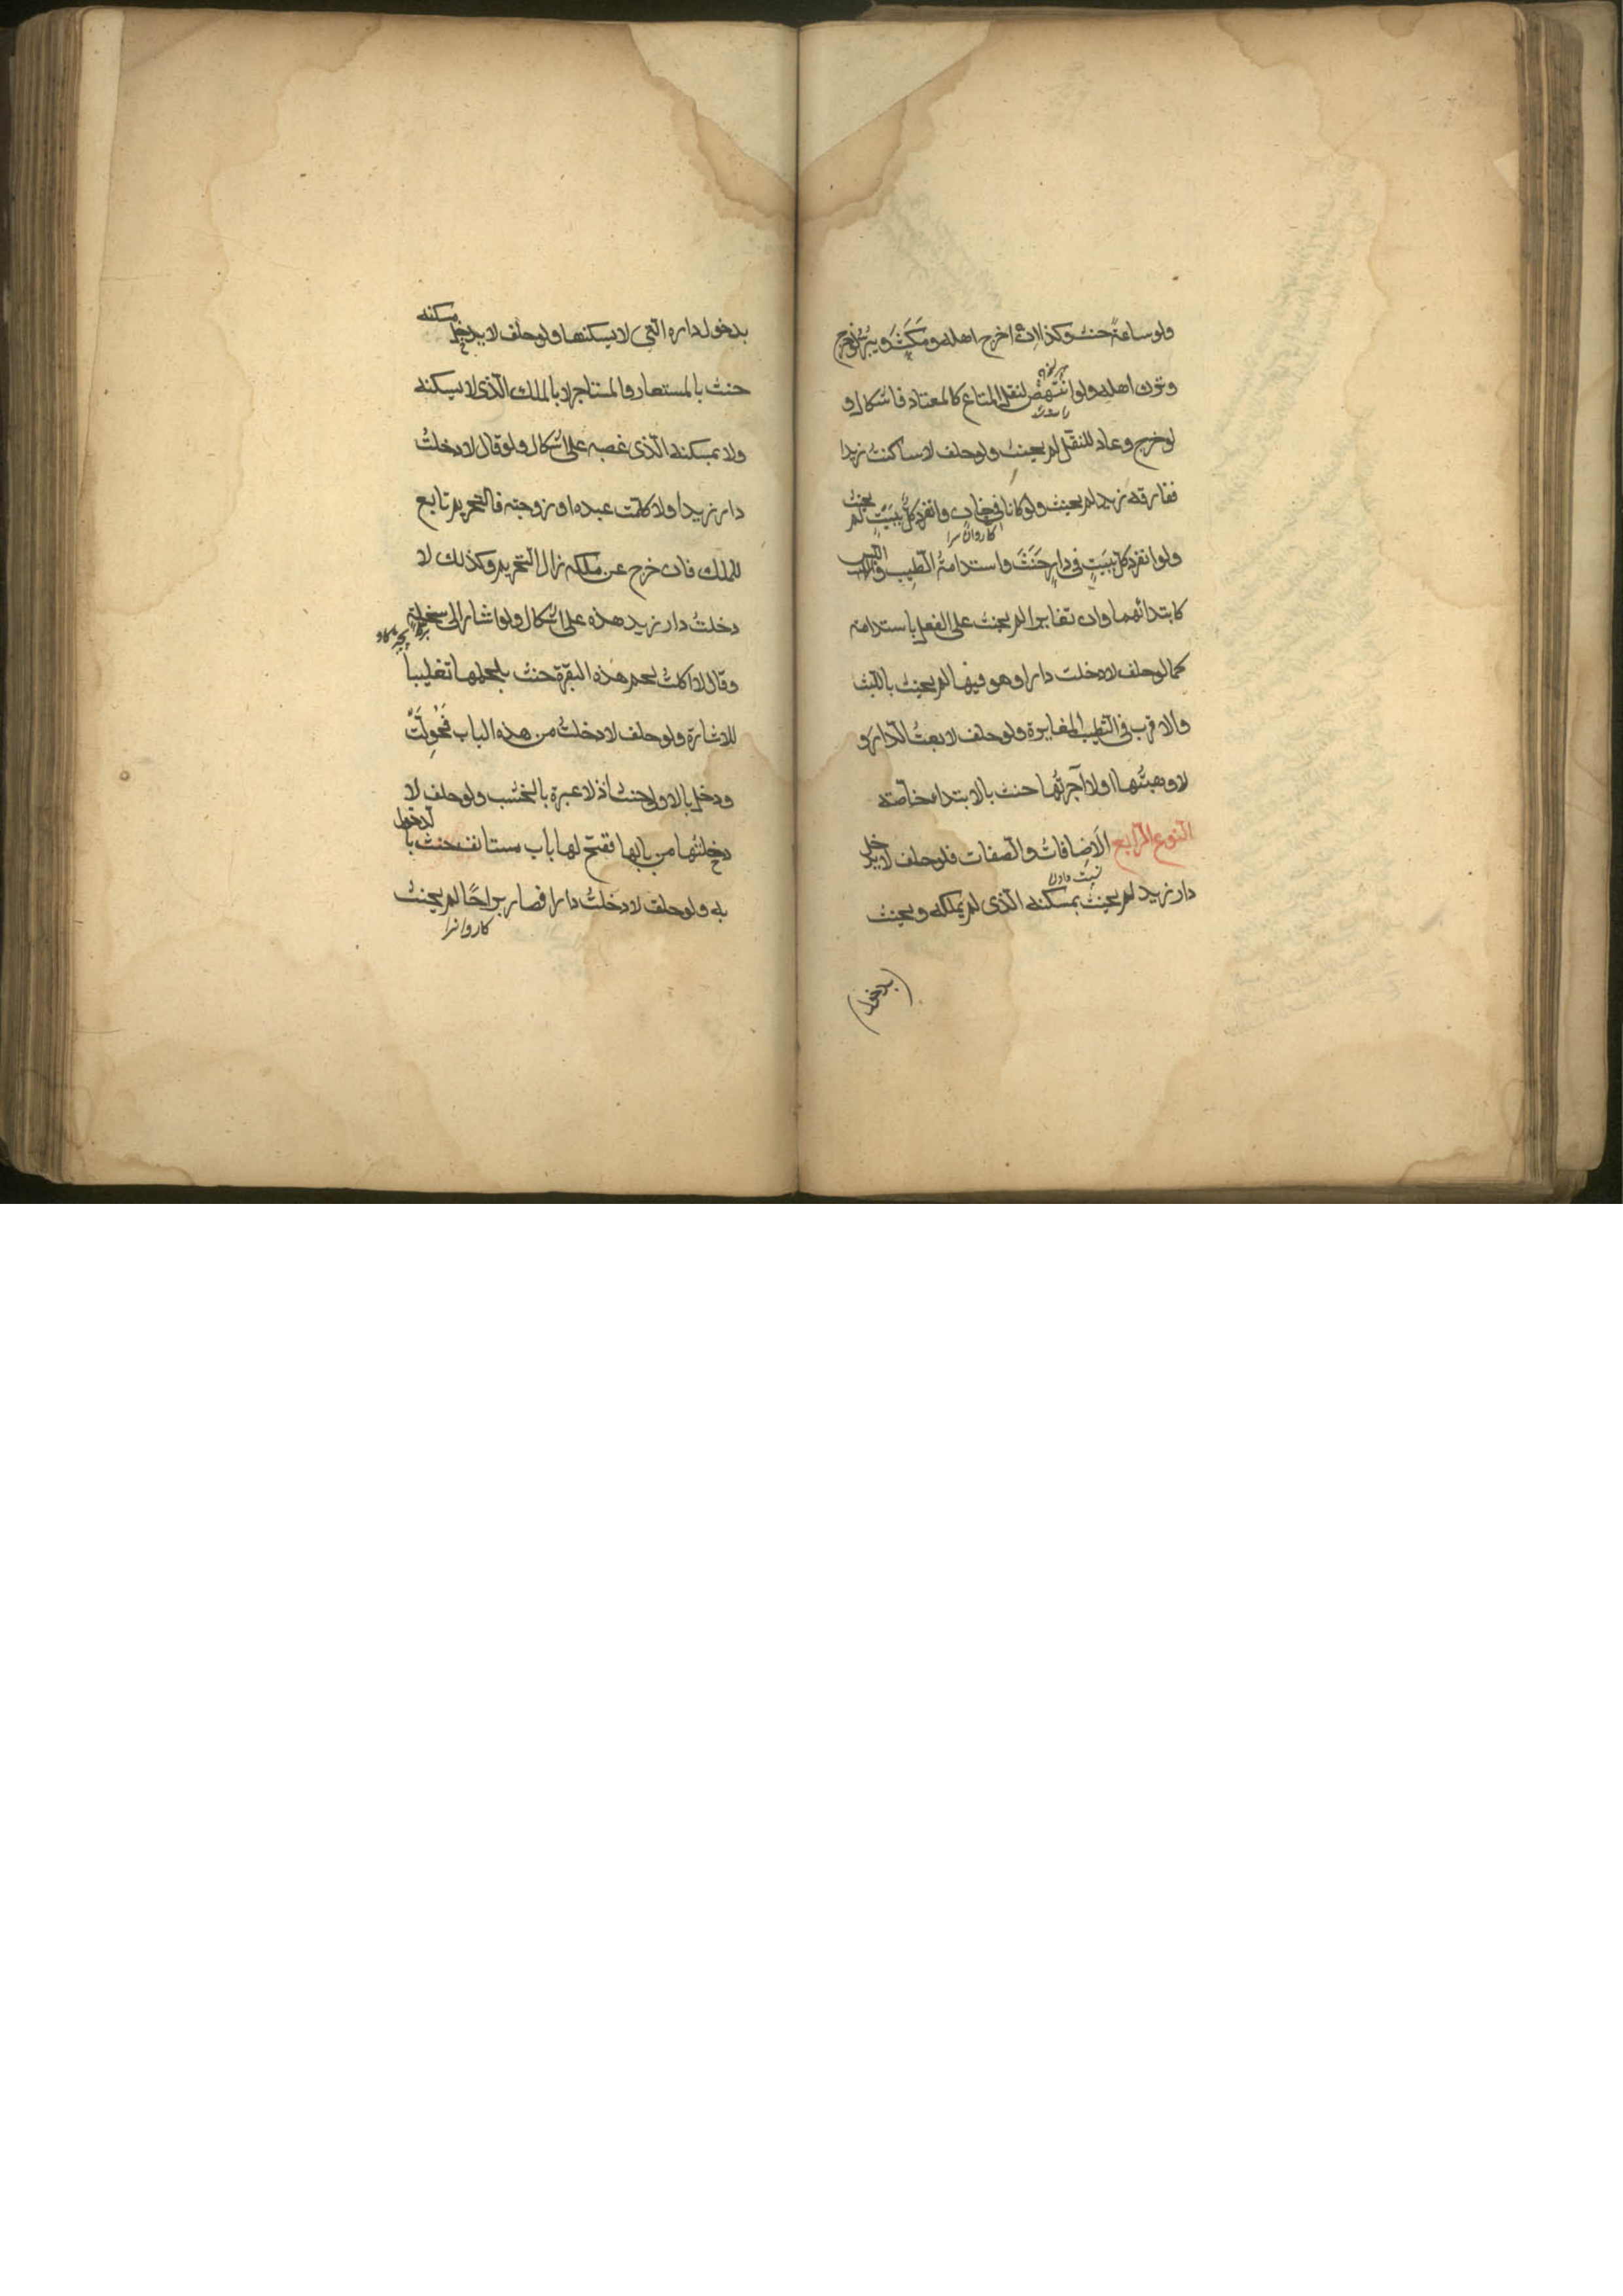 ولو ساعةً حنث وكذا ان اخرج اهله ومَكَثَ ويبرُّ لو خرج
وترك اهله ولو انتهض لنقل المتاع كالمعتاد فاشكال و
لو خرج وعاد للنقل لم يحنث ولو حلف لا ساكنت زيدا
ففارقه زيد لم يحنث ولو كانا في خان وانفرد كلٌّ ببيتٍ لم يحنث
كاروان سرا
ولو انفرد كل ببيتٍ في دارٍ حَنَثَ واستدامةُ الطيب واللبس
كابتدائهما وان تغايرا لم يحنث على الفعل باستدامته
كما لو حلف لا دخلت دارا وهو فيها لم يحنث باللبث
والاقرب في التطيب المغايرة ولو حلف لا بعتُ الدار و
لا وهبتُها اولا آجرتُها حنث بالابتداء خاصّة
النوع الرابع الاضافاتُ والصفات فلو حلف لا يدخل
نسبت دادن
دار زيد لم يحنث بمسكنه الذى لم يملكه ويحنث
بدخول
بدخول داره التي لا يسكنها ولو حلف لا يدخل مسكنه
حنث بالمستعار والمستاجر لا بالملك الذى لا يسكنه
ولا بمسكنه الذى غصبه على اشكال ولو قال لا دخلتُ
دار زيد اولا كلمت عبده او زوجته فالتحريم تابع
للملك فان خرج عن ملكه زال التحريم وكذلك لا
دخلتُ دار زيد هذه على اشكال ولو اشار الى سخلةٍ
وقال لا اكلتُ لحم هذه البقرة حنث بلحمها تغليبا
للاشارة ولو حلف لا دخلتُ من هذه الباب فحُوِّلَتْ
ودخل بالاول حنث اذ لا عبرة بالخشب ولو حلف لا
دخلتُها من بابها ففتح لها باب مستانف حنث بالدخول
به ولو حلف لا دخلتُ دارا فصار براحًا لم يحنث
كاروانسرا